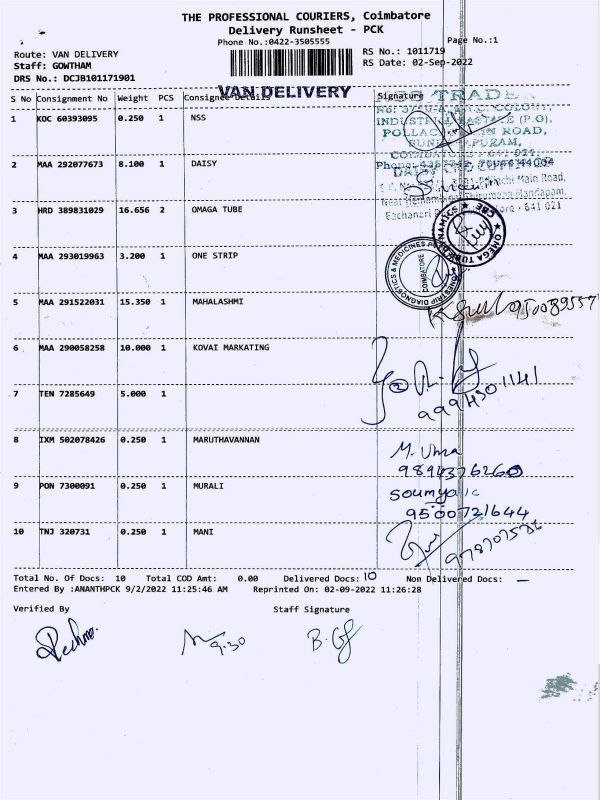 THE PROFESSIONAL COURIERS, Coimbatore
Delivery Runsheet - PCK
Phone No.:0422-3505555
Page No.:1
Route: VAN DELIVERY
RS No.: 1011719
Staff: GOWTHAM
RS Date: 02-Sep-2022
DRS No.: DCJB101171901
VAN DELIVERY
S No Consignment No Weight PCS Consignee Details Signature
1 KOC 60393095 0.250 1 NSS
INDUSTRIAL ESTATE (P.O),
2 MAA 292077673 8.100 1 DAISY
3 HRD 389831029 16.656 2 OMAGA TUBE
4 MAA 293019963 3.200 1 ONE STRIP
COIMBATORE
5 MAA 291522031 15.350 1 MAHALASHMI
6 MAA 290058258 10.000 1 KOVAI MARKATING
7 TEN 7285649 5.000 1
9994301141
8 IXM 502078426 0.250 1 MARUTHAVANNAN
M. Uma
9894376260
9 PON 7300091 0.250 1 MURALI
Soumya
9500721644
10 TNJ 320731 0.250 1 MANI
Total No. Of Docs: 10 Total COD Amt: 0.00 Delivered Docs: 10 Non Delivered Docs: —
Entered By :ANANTHPCK 9/2/2022 11:25:46 AM Reprinted On: 02-09-2022 11:26:28
Verified By Staff Signature
9.30